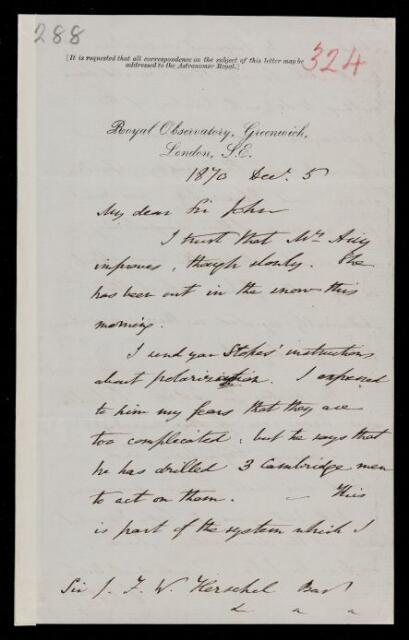 288
324
[It is requested that all correspondence on the subject of this letter may be
addressed to the Astronomer Royal.]
Royal Observatory, Greenwich,
London, S.E.
1870 Dec. 5
My dear Sir John
I trust that Mrs Airy
improves, though slowly. She
has been out in the snow this
morning.
I send you Stokes' instructions
about polarization. I expressed
to him my fears that they are
too complicated: but he says that
he has drilled 3 Cambridge men
to act on them. — This
is part of the system which I
Sir J. F. W. Herschel Bart
&c a a